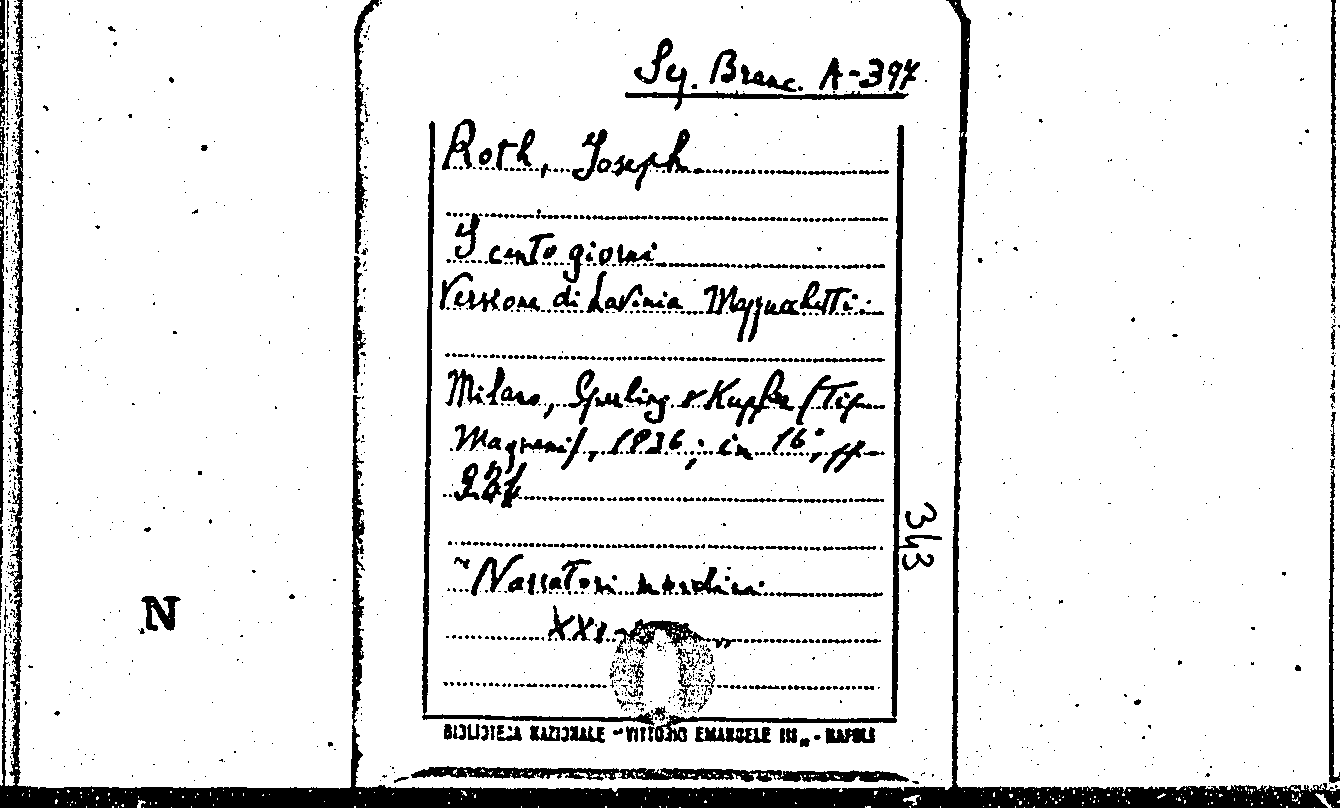 Sy. Branc. A-397
Roth, Joseph.
I cento giorni
Versione di Lavinia Mazzucchetti.
Milano, Sperling & Kupfer (Tip.
Magnani), 1936; in 16°, pp.
264
343
"Narratori nordici
N
XXI
"
BIBLIOTECA NAZIONALE "VITTORIO EMANUELE III„ - NAPOLI